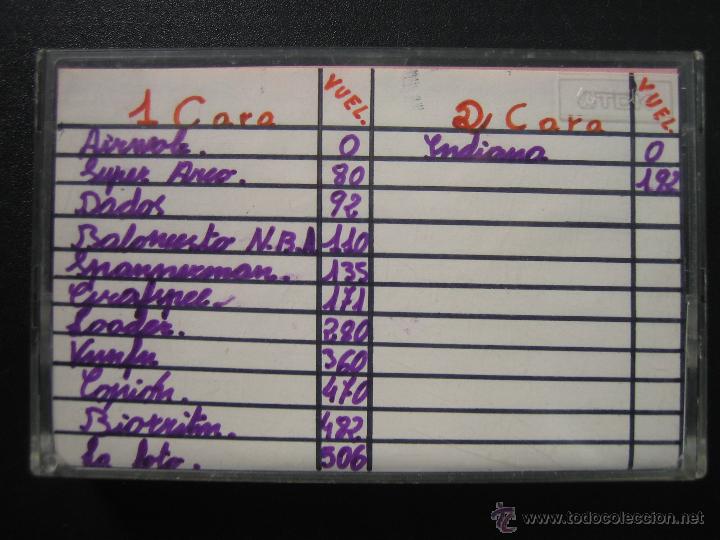 1 Cara VUEL.
Airwolf. 0
Super Arco. 80
Dados 92
Baloncesto N.B.A 110
Spannerman. 135
171
Loader. 280
360
Copión. 470
Biorritm. 482
La loto. 506
2) Cara VUEL.
Indiana 0
182
TDK
todocoleccion
www.todocoleccion.net